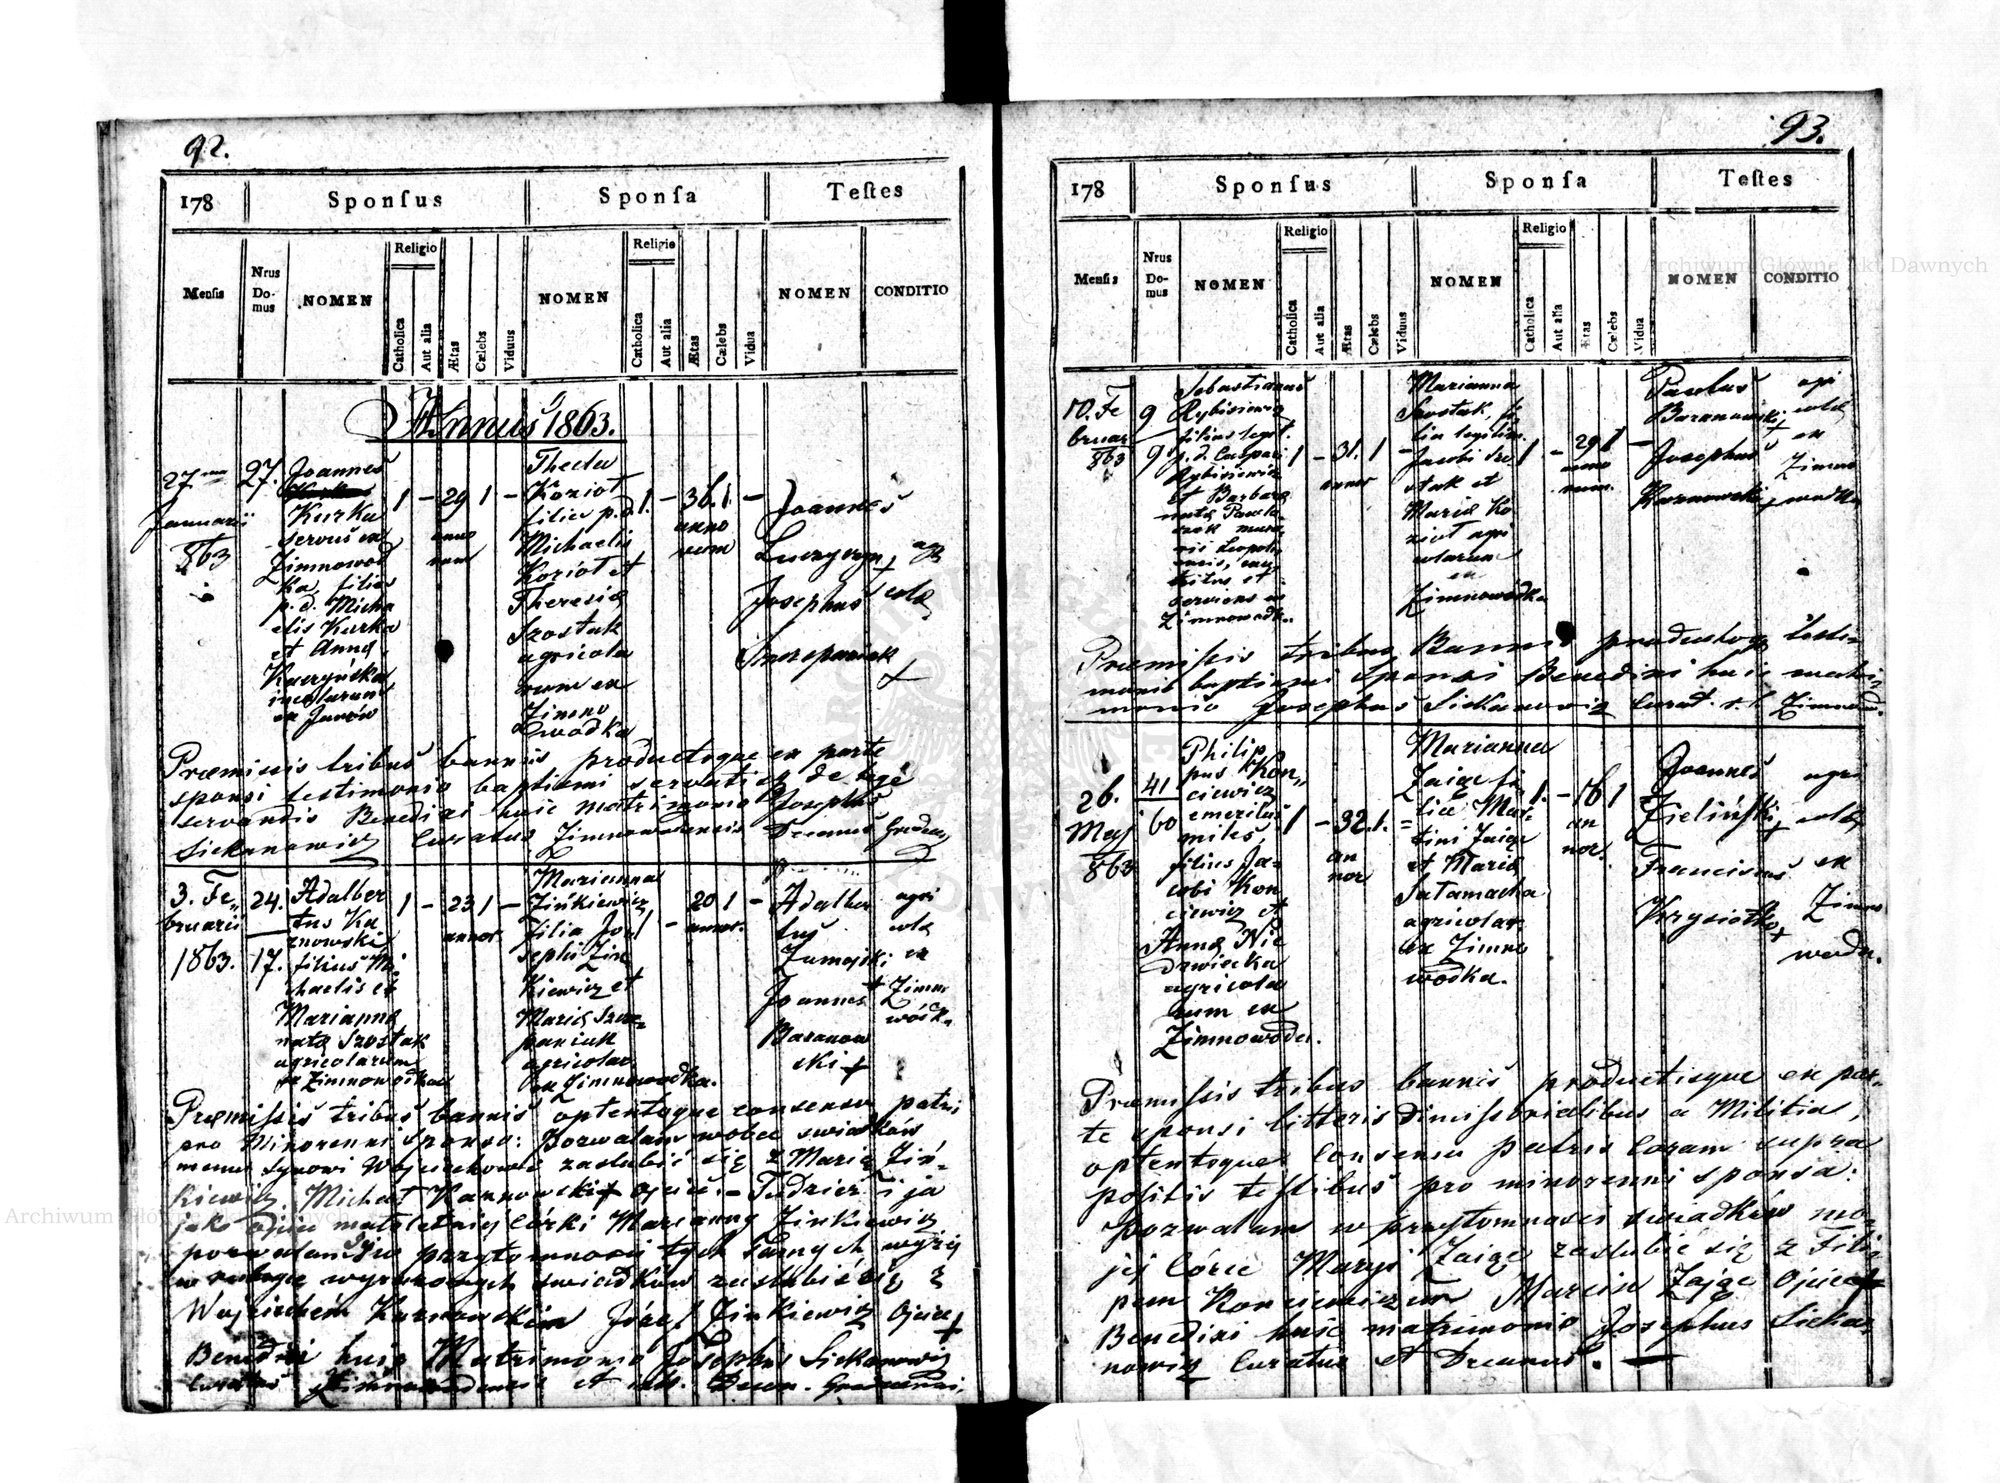 92.
178
Sponſus
Sponſa
Teſtes
Menſis
Nrus Do-mus
NOMEN
Religio
Catholica
Aut alia
Ætas
Cælebs
Viduus
NOMEN
Religio
Catholica
Aut alia
Ætas
Cælebs
Vidua
NOMEN
CONDITIO
Annus 1863.
27ma
Januarii
863
27.
Joannes
Kurka
servus ex
Zimnowod
ka filius
p. d. Micha
elis Kurka
et Anna
incolarum
ex Janów
1 - 29 1 -
anno
rum
Thecla
Koziot
filia p. d.
Michaelis
Koziot et
Theresia
Szostak
agricola
rum ex
Zimno
wodka
1. - 36. 1. -
anno
rum
Joannes
+
Josephus
Szczepaniak
+
agri
cola
Præmissis tribus bannis productoque ex parte
sponsi testimonio baptismi servatis de lege
servandis Benedixi huic matrimonio Josephus
Siekanowicz Curatus Zimnowodensis Decanus
3. Fe-
bruarii
1863.
24.
17.
Adalber
tus Ka
znowski
filius Mi
chaelis et
Marianna
nata Szostak
agricolarum
ex Zimnowodka
1 - 23 1 -
annor.
Marianna
Zinkiewicz
filia Jo
sephi Zin
kiewicz et
Maria Szcze-
paniak
agricolar.
ex Zimnowodka.
1 - 20 1 -
annor.
Adalber
tus
Zamojski
+
Joannes
Baranow
ski +
agri
cola
ex
Zimno
wódka
Præmissis tribus bannis optentoque consensu patri
pro minorenni sponso: Pozwalam wobec swiadków
memu synowi Wojciechowi zaslubić się z Marią Zin-
kiewicz Michał Kaznowski + ojciec. - Tudzież i ja
jak ojciec małoletniej Córki Marianny Zinkiewicz
pozwalam jej w przytomnosci tych samych wyżej
swiadków zaslubić się z
Wojciechem Kaznowskim Józef Zinkiewicz Ojciec +
Benedixi huic Matrimonio Josephus Siekanowicz
Curatus Zimnowodensis et Decan.
93.
178
Sponſus
Sponſa
Teſtes
Menſis
Nrus Do-mus
NOMEN
Religio
Catholica
Aut alia
Ætas
Cælebs
Viduus
NOMEN
Religio
Catholica
Aut alia
Ætas
Cælebs
Vidua
NOMEN
CONDITIO
10. Fe
bruar
863
9
9
Sebastianus
Rybisiewicz
filius legit.
p. d. Caspari
Rybisiewicz
et Barbara
nata
et
serviens in
Zimnowodka
1 - 31. 1 -
annor
Marianna
Szostak, fi
lia legitim.
Jacobi Szo
stak et
Maria Ko
ziot agri
colarum
ex
Zimnowodka
1 - 29 1 -
anno
rum.
Paulus
Baranowski
+
Josephus
Kaznowski +
agri
colæ
ex
Zimno
wodka
Præmissis tribus Bannis productoq. testi-
monio baptismi Sponsi Benedixi huic matri-
monio Josephus Siekanowicz Curat. r. l. Zimnowod.
26.
Maji
863
41
60
Philip
pus Kon-
ciewicz
emeritus
miles,
filius Ja-
cobi Kon
ciewicz et
Anna Nie
dzwiecka
agricola
rum ex
Zimnowoda.
1 - 32. 1. =
an
nor
Marianna
Zając fi
lia Mar-
tini Zając
et Maria
Sałamacha
agricolar.
ex Zimno
wodka.
1. - 16 1
an
nor.
Joannes
Zieliński
+
Franciscus
Krysiotko
+
agri
colæ
ex
Zimno
woda.
Præmissis tribus bannis productisque ex par-
te sponsi litteris dimissorialibus a Militia,
optentoque Consensu patris Coram supra
positis testibus pro minorenni sponsa:
pozwalam w przytomnosci swiadków mo-
jej Córce Maryi Zając zaslubić się z Fili-
pem Konciewiczem Marcin Zając Ojciec +
Benedixi huic matrimonio Josephus Sieka-
nowicz Curatus et Decanus. —
Archiwum Główne Akt Dawnych
Archiwum Główne Akt Dawnych